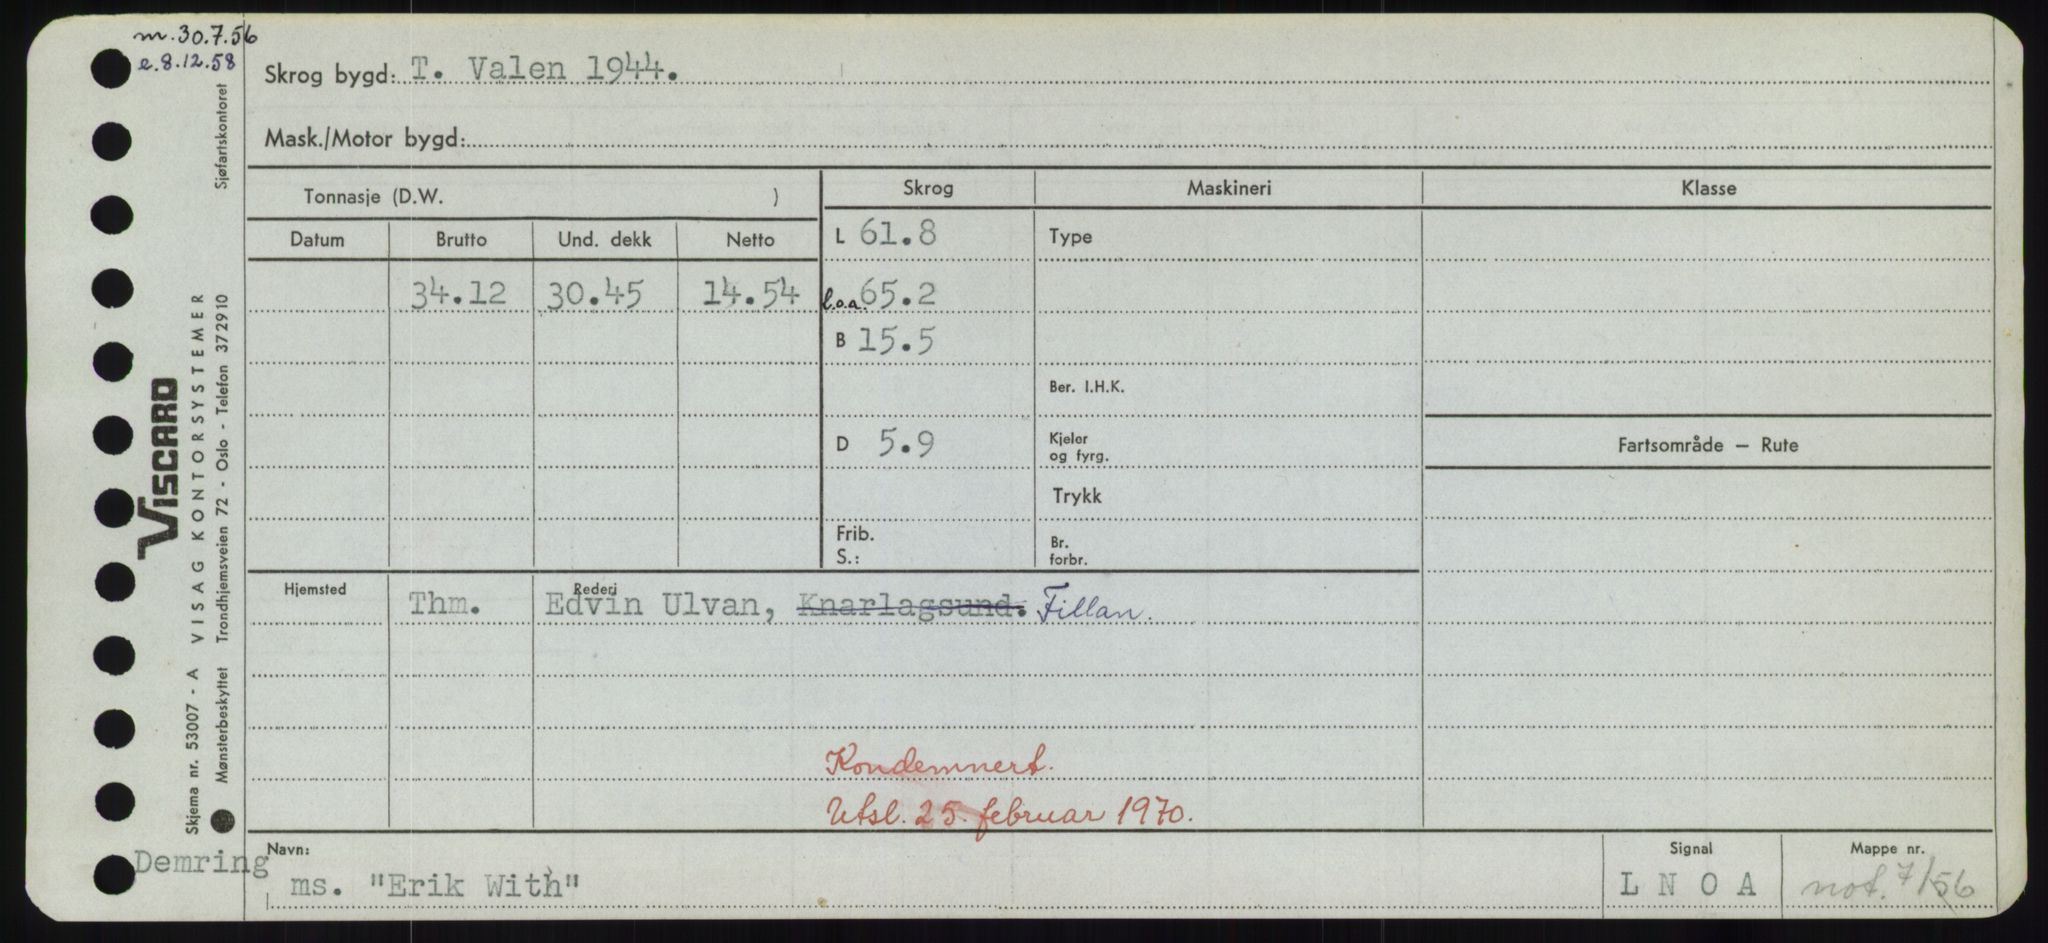 m. 30.7.56
e. 8.12.58
Skrog bygd: T. Valen 1944.
Mask./Motor bygd:
Tonnasje (D.W. )
Skrog Maskineri Klasse
Datum Brutto Und. dekk Netto
L 61.8 Type
34.12 30.45 14.54 l.o.a. 65.2
B 15.5
Ber. I.H.K.
D 5.9 Kjeler
og fyrg.
Fartsområde — Rute
Trykk
Frib.
S.:
Br.
forbr.
Hjemsted Thm. Rederi Edvin Ulvan, Knarlagsund. Fillan.
Kondemnert.
Utsl. 25. februar 1970.
Demring
Navn: ms. "Erik With"
Signal L N O A
Mappe nr. not. 7/56
Sjøfartskontoret
VISCARD
VISAG KONTORSYSTEMER
Skjema nr. 53007 - A
Mønsterbeskyttet Trondhjemsveien 72 - Oslo - Telefon 372910